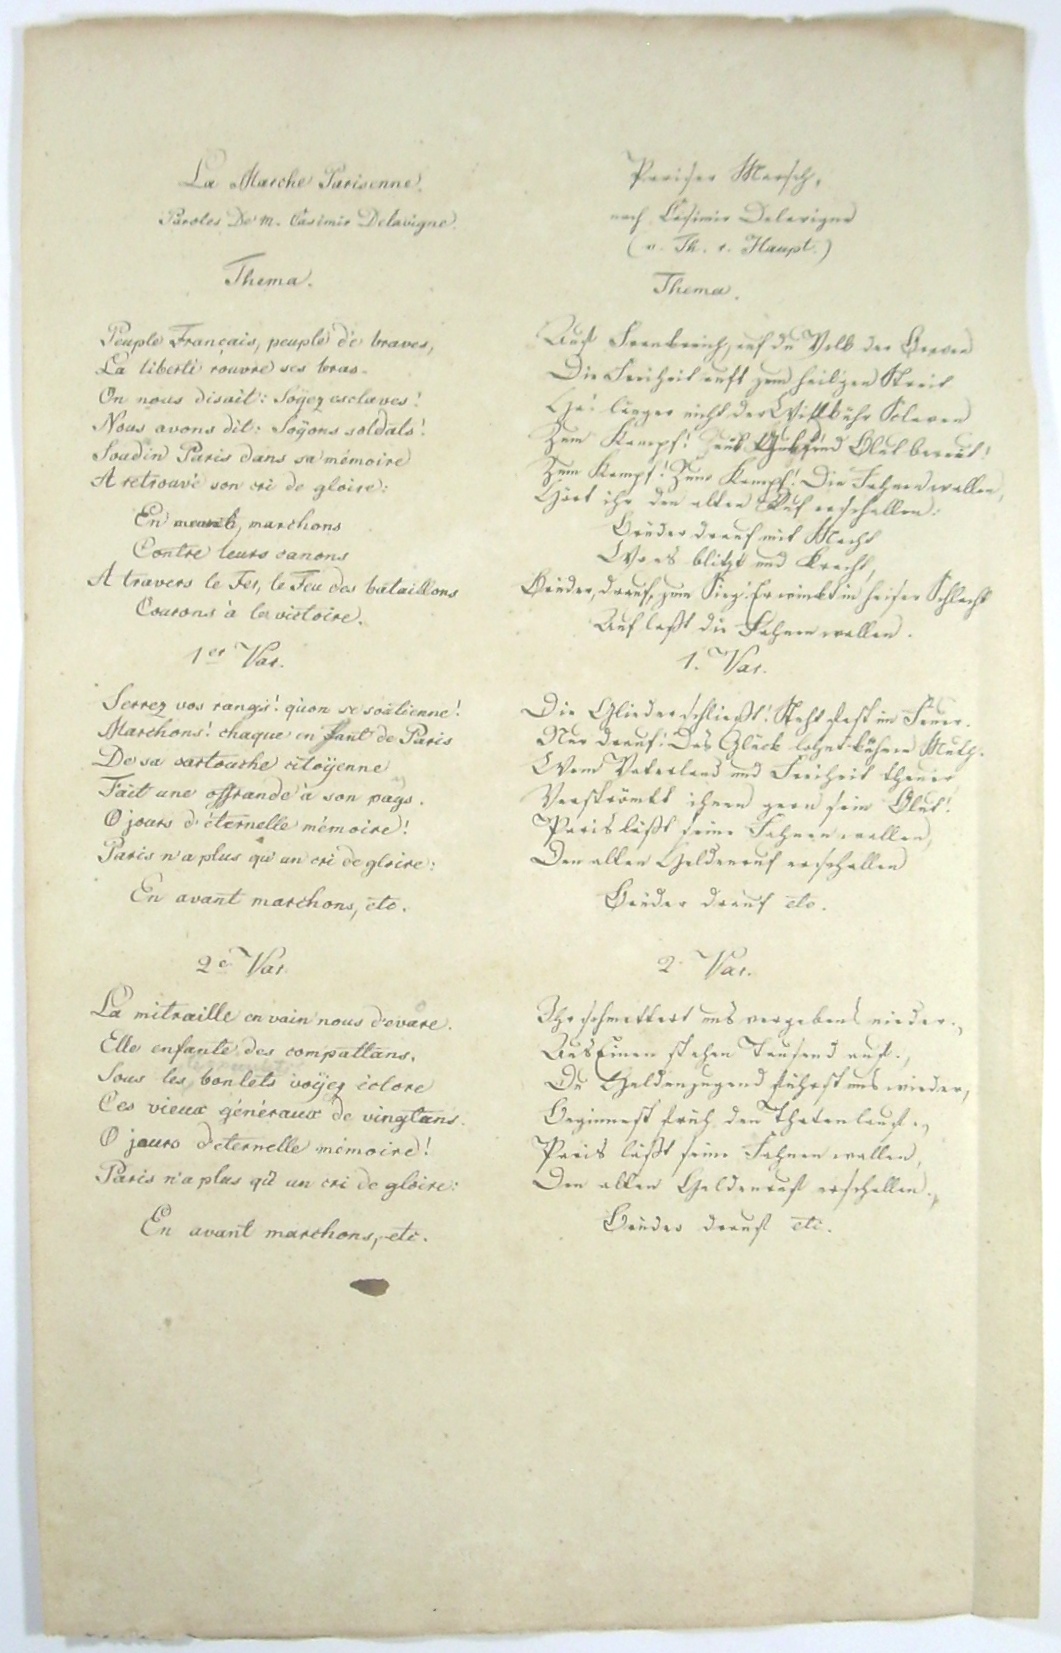 La Marche Parisenne.
Paroles De M. Casimir Delavigne.
Thema.
Peuple Français, peuple de braves,
La liberté rouvre ses bras.
On nous disait: Soyez esclaves!
Nous avons dit: Soyons soldats!
Soudin Paris dans sa mémoire
A retrouvé son cri de gloire:
En marchons
Contre leurs canons
A travers le Fer, le Feu des bataillons
Courons à la victoire.
1er Var.
Serrez vos rangs! quon se soutienne!
Marchons! chaque en fant de Paris
De sa cartouche citoÿenne
Fait une offrande à son pays.
O jours d'éternelle mémoire!
Paris n'a plus qu'un cri de gloire:
En avant marchons, etc.
2e Var.
La mitraille en vain nous dévore.
Elle enfante des compattans.
Sous les bonlets voÿez éclore
Ces vieux généraux de vingtans.
O jours d'eternelle mémoire!
Paris n'a plus qu'un cri de gloire:
En avant marchons, etc.
Pariser Marsch,
nach Casimir Delavigne
(v. Th. v. Haupt.)
Thema.
Auf Frankreich, auf du Volk der Braven
Die Freiheit ruft zum heil'gen Streit
länger nicht der Willkühr Sclaven
Zum Kampf! und Blut bereit!
Zum Kampf! Zum Kampf! Die Fahnen wallen,
Hört ihr den alten Ruf erschallen:
Brüder drauf mit Macht
Wo es blitzt und kracht,
Brüder, drauf, zum Sieg! Er winkt in heiser Schlacht
Auf laßt die Fahnen wallen.
1. Var.
Die Glieder schließt! Steht fest im Feuer.
Nur drauf! Das Glück lohnt kühnen Muth.
Wem Vaterland und Freiheit theuer
Verströmet ihnen gern sein Blut!
Paris läßt seine Fahnen wallen,
Den alten Heldenruf erschallen
Brüder drauf etc.
2. Var.
Ihr schmettert uns vergebens nieder.,
Aus Einem stehen Tausend auf.,
Du Heldenjugend führst uns wieder,
Beginnest früh den Thatenlauf.,
Paris läßt seine Fahnen wallen,
Den alten Heldenruf erschallen.,
Brüder drauf etc.